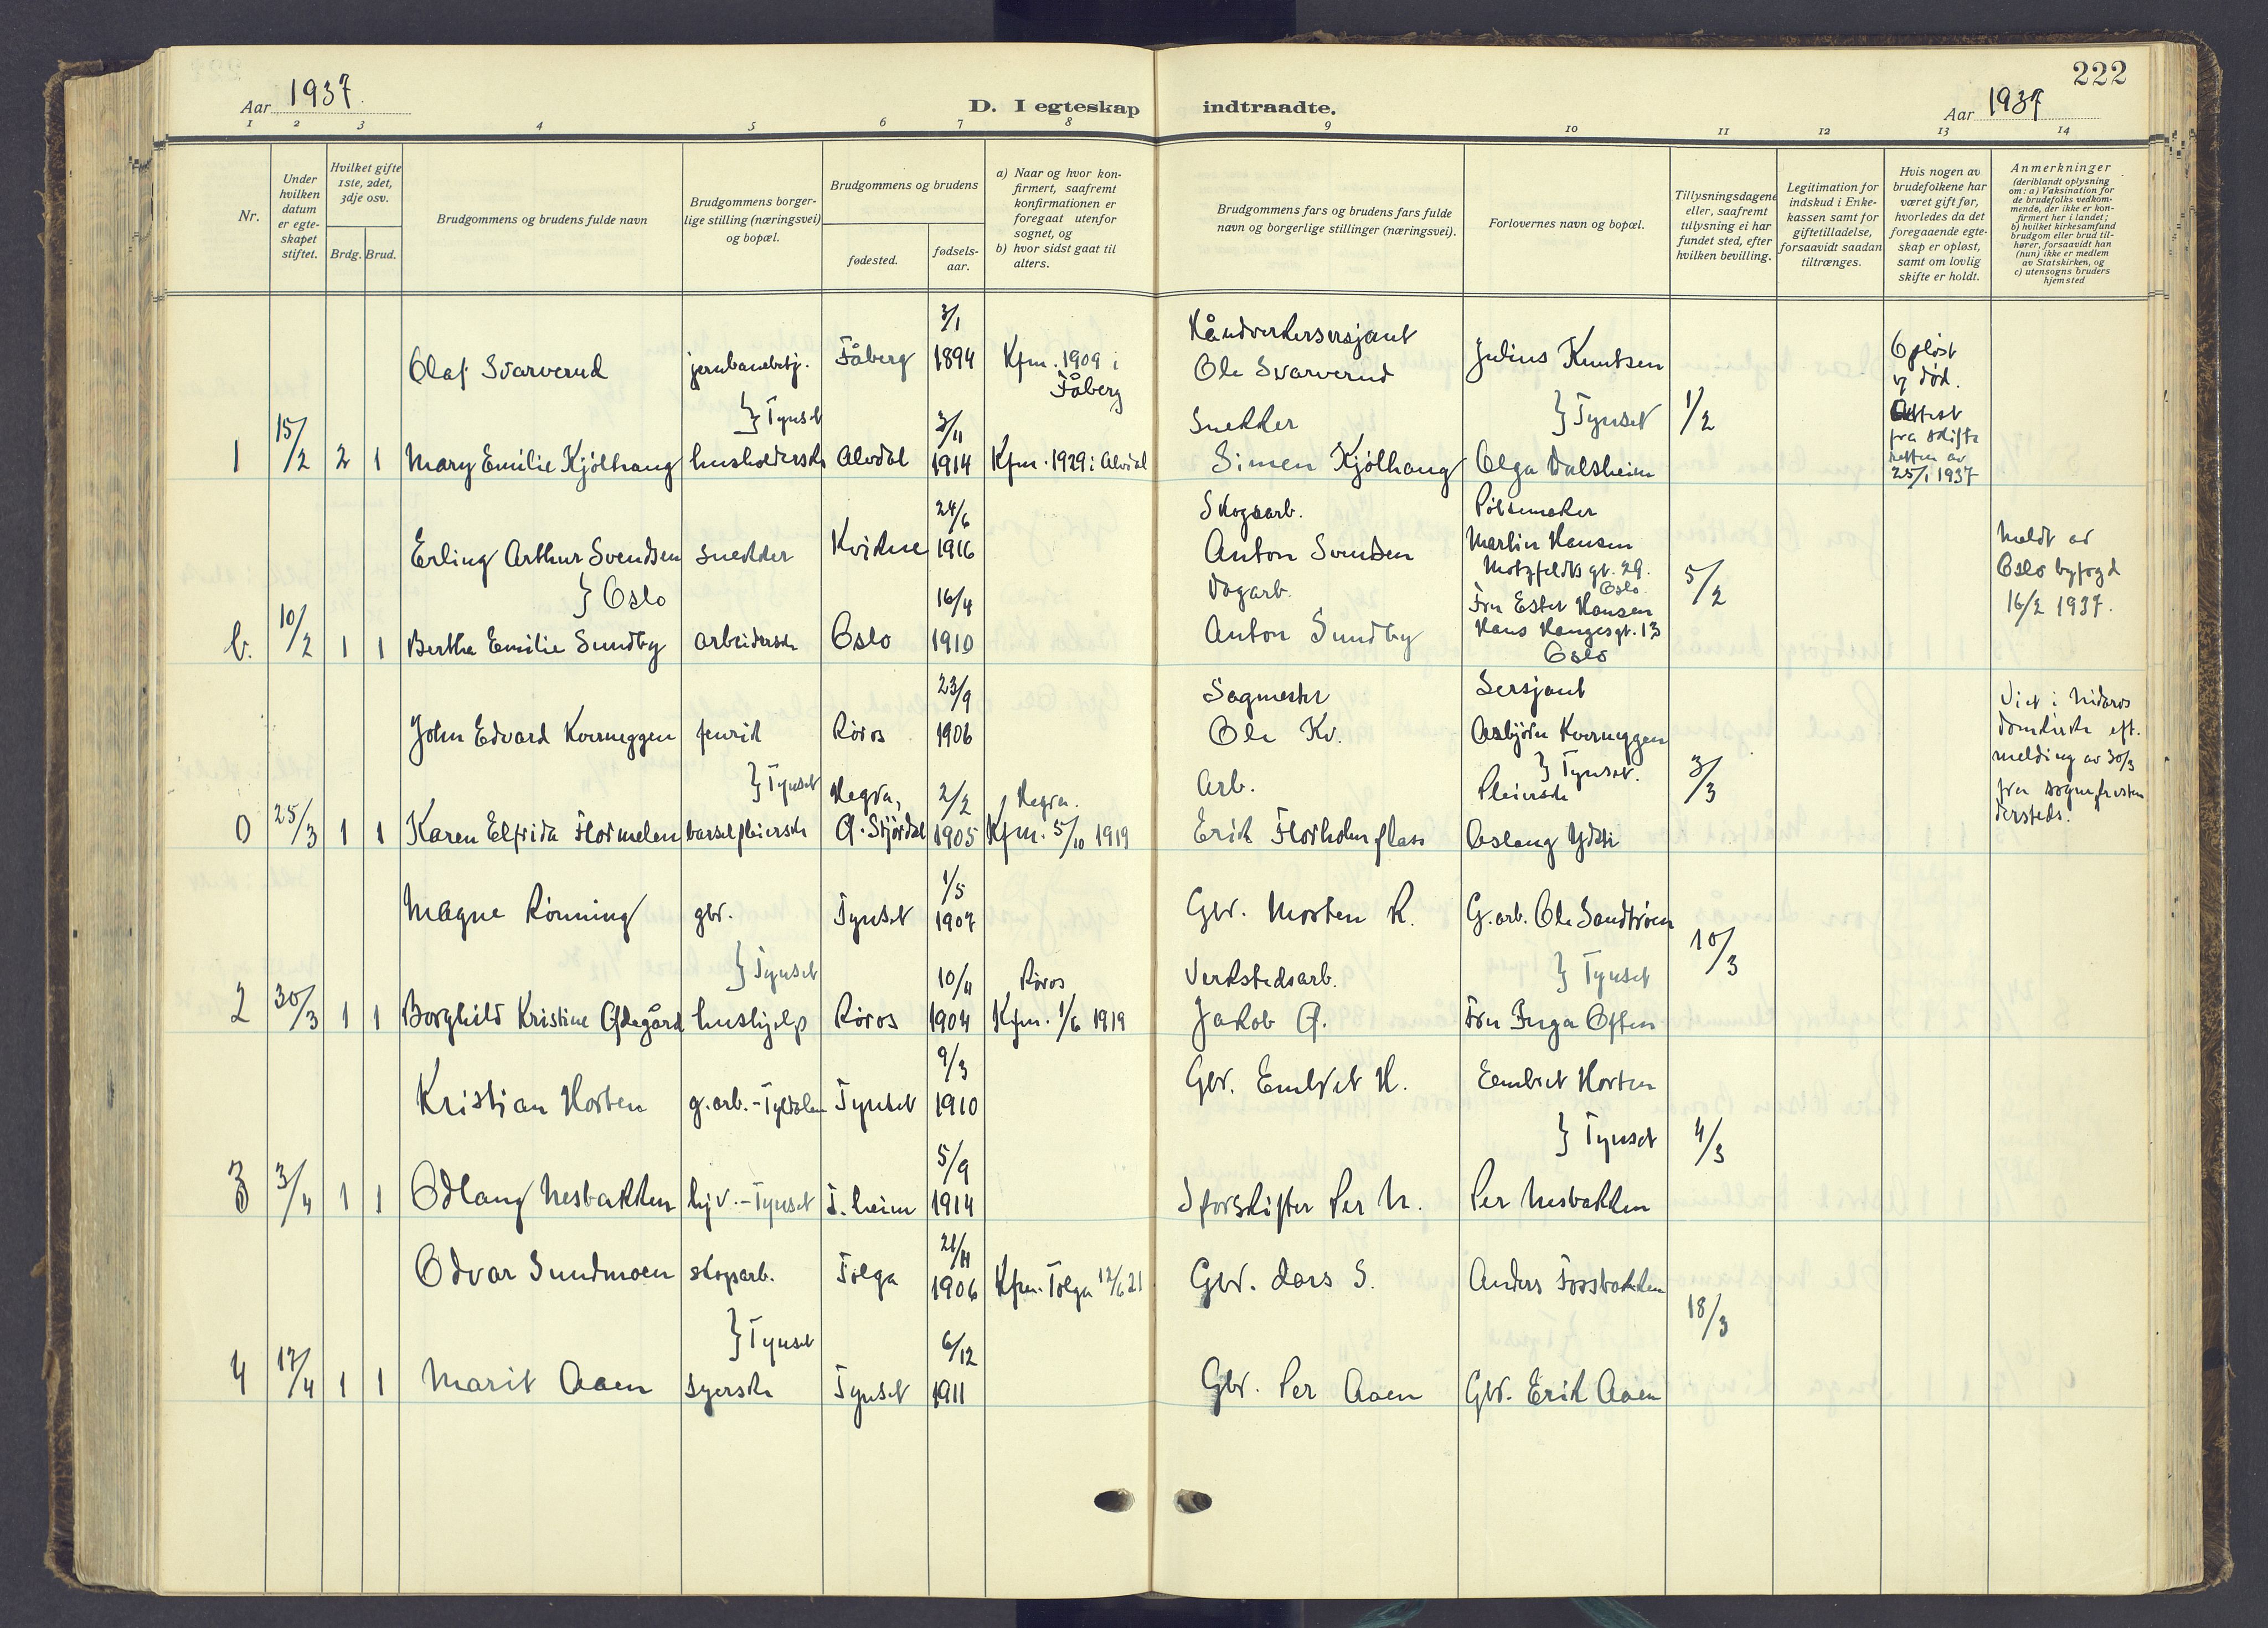 222
Aar 1937.
D. I egteskap indtraadte.
Aar 1937
1 2 3 4 5 6 7 8 9 10 11 12 13 14
Nr.
Under hvilken datum er egteskapet stiftet.
Hvilket gifte 1ste, 2det, 3dje osv.
Brdg. Brud.
Brudgommens og brudens fulde navn
Brudgommens borgerlige stilling (næringsvei) og bopæl.
Brudgommens og brudens
fødested.
fødselsaar.
a) Naar og hvor konfirmert, saafremt konfirmationen er foregaat utenfor sognet, og
b) hvor sidst gaat til alters.
Brudgommens fars og brudens fars fulde navn og borgerlige stillinger (næringsvei).
Forlovernes navn og bopæl.
Tillysningsdagene eller, saafremt tillysning ei har fundet sted, efter hvilken bevilling.
Legitimation for indskud i Enkekassen samt for giftetilladelse, forsaavidt saadan tiltrænges.
Hvis nogen av brudefolkene har været gift før, hvorledes da det foregaaende egteskap er opløst, samt om lovlig skifte er holdt.
Anmerkninger
(deriblandt oplysning om: a) Vaksination for de brudefolks vedkommende, der ikke er konfirmert her i landet;
b) hvilket kirkesamfund brudgom eller brud tilhører, forsaavidt han (hun) ikke er medlem av Statskirken, og
c) utensogns bruders hjemsted
3/1
Olaf Svarverud jernbanebetj. Fåberg 1894 Kfm. 1909 i Fåberg
Håndverkersersjant
Ole Svarverud
Julius Knutsen
Opløst v. død.
} Tynset
3/11
Snekker
} Tynset 1/2
Attest fra skifteretten av 25/1 1937
1 15/2 2 1 Mary Emilie Kjölhaug husholderske Alvdal 1914 Kfm. 1929 i Alvdal Simen Kjölhaug Olga Dalsheim
24/6
Erling Arthur Svendsen snekker Kvikne 1916
Skogsarb.
Anton Svendsen
Pölsemaker
Martin Hansen
Motzfeldts gt. 29. Oslo
} Oslo
16/4
Dagarb.
Fru Ester Hansen
Hans Haugesgt. 13
Oslo
5/2
Meldt av
Oslo byfogd
16/2 1937.
b. 10/2 1 1 Berthe Emilie Sundby arbeiderske Oslo 1910 Anton Sundby
23/9
John Edvard Kverneggen fenrik Röros 1906
Sagmester
Ole Kv.
Sersjant
Asbjörn Kverneggen
} Tynset.
Viet i Nidaros
domkirke eft.
melding av 30/3
fra sognepresten
dersteds.
} Tynset
Hegra,
2/2
Hegra.
Arb.
Pleierske
3/3
0 25/3 1 1 Karen Elfrida Flormelen barselpleierske Ø. Stjördal 1905 Kfm. 5/10 1919 Erik Florholmflass Aslaug Ydsti
1/5
Magne Rönning gbr. Tynset 1907 Gbr. Morten R. G.arb. Ole Sandtröen
} Tynset
10/11
Röros
Verkstedsarb.
} Tynset
10/3
2 30/3 1 1 Borghild Kristine Ødegård hushjelp Röros 1904 Kfm. 1/6 1919 Jakob Ø. Fru Inga Often
9/3
Kristian Horten g.arb. - Tyldalen Tynset 1910 Gbr. Embret H. Eembret Horten
} Tynset 4/3
5/9
3 3/4 1 1 Odlaug Nesbakken hjv. - Tynset T.heim 1914 Sporskifter Per N. Per Nesbakken
21/11
Odvar Sundmoen skogsarb. Tolga 1906 Kfm. Tolga 12/6 21 Gbr. Lars S. Anders Fossbakken
} Tynset
6/12
18/3
4 17/4 1 1 Marit Aaen syerske Tynset 1911 Gbr. Per Aaen Gbr. Erik Aaen